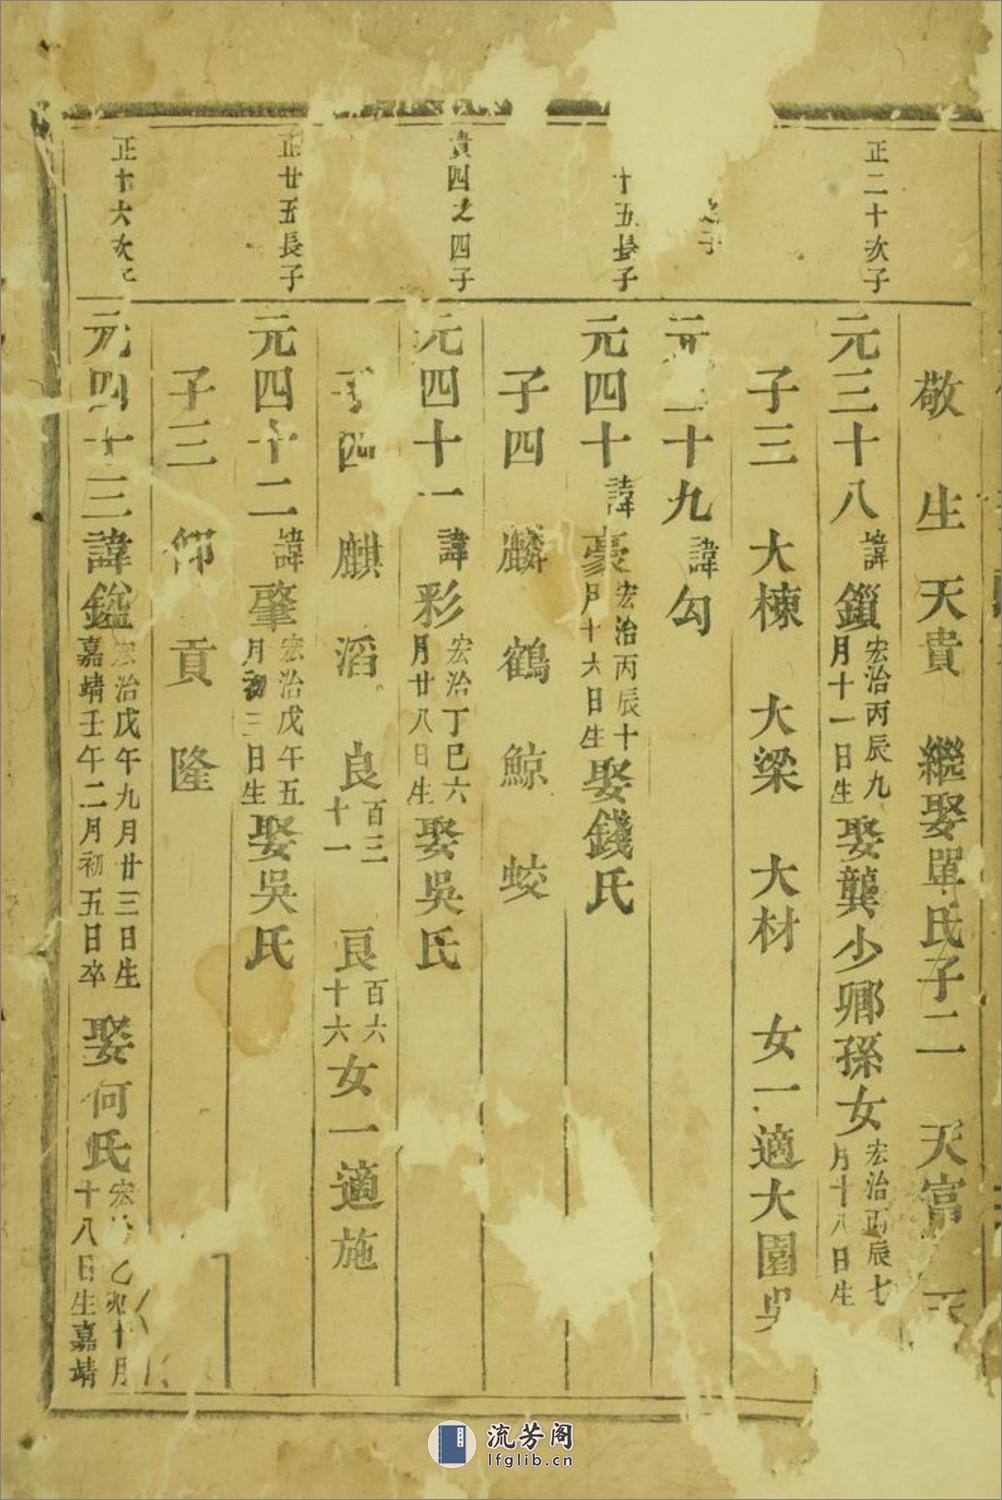 敬生天貴繼娶單氏子二天富
正二十次子
元三十八諱鎻宏治丙辰九月十一日生娶龔少卿孫女宏治丙辰七月十八日生
子三大棟大梁大材女一適大園吳
之子
十九諱勾
十五長子
元四十諱豪宏治丙辰十月十六日生娶錢氏
子四麟鶴鯨蛟
貴四之四子
元四十一諱彩宏治丁巳六月廿八日生娶吳氏
子四麒滔良百三十一良百六十六女一適施
正廿五長子
元四十二諱肇宏治戊午五月初三日生娶吳氏
子三仰貢隆
正十六次子
元四十三諱鑑宏治戊午九月廿三日生嘉靖壬午二月初五日卒娶何氏宏乙卯十月十八日生嘉靖
流芳阁
lfglib.cn